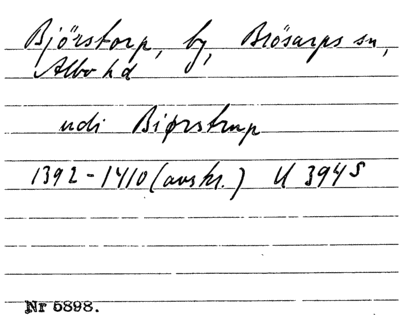 Björstorp, by, Brösarps sn,
Albo hd
udi Biørstrup
1392-1410 (avskr.) U 394 S
Nr 5898.